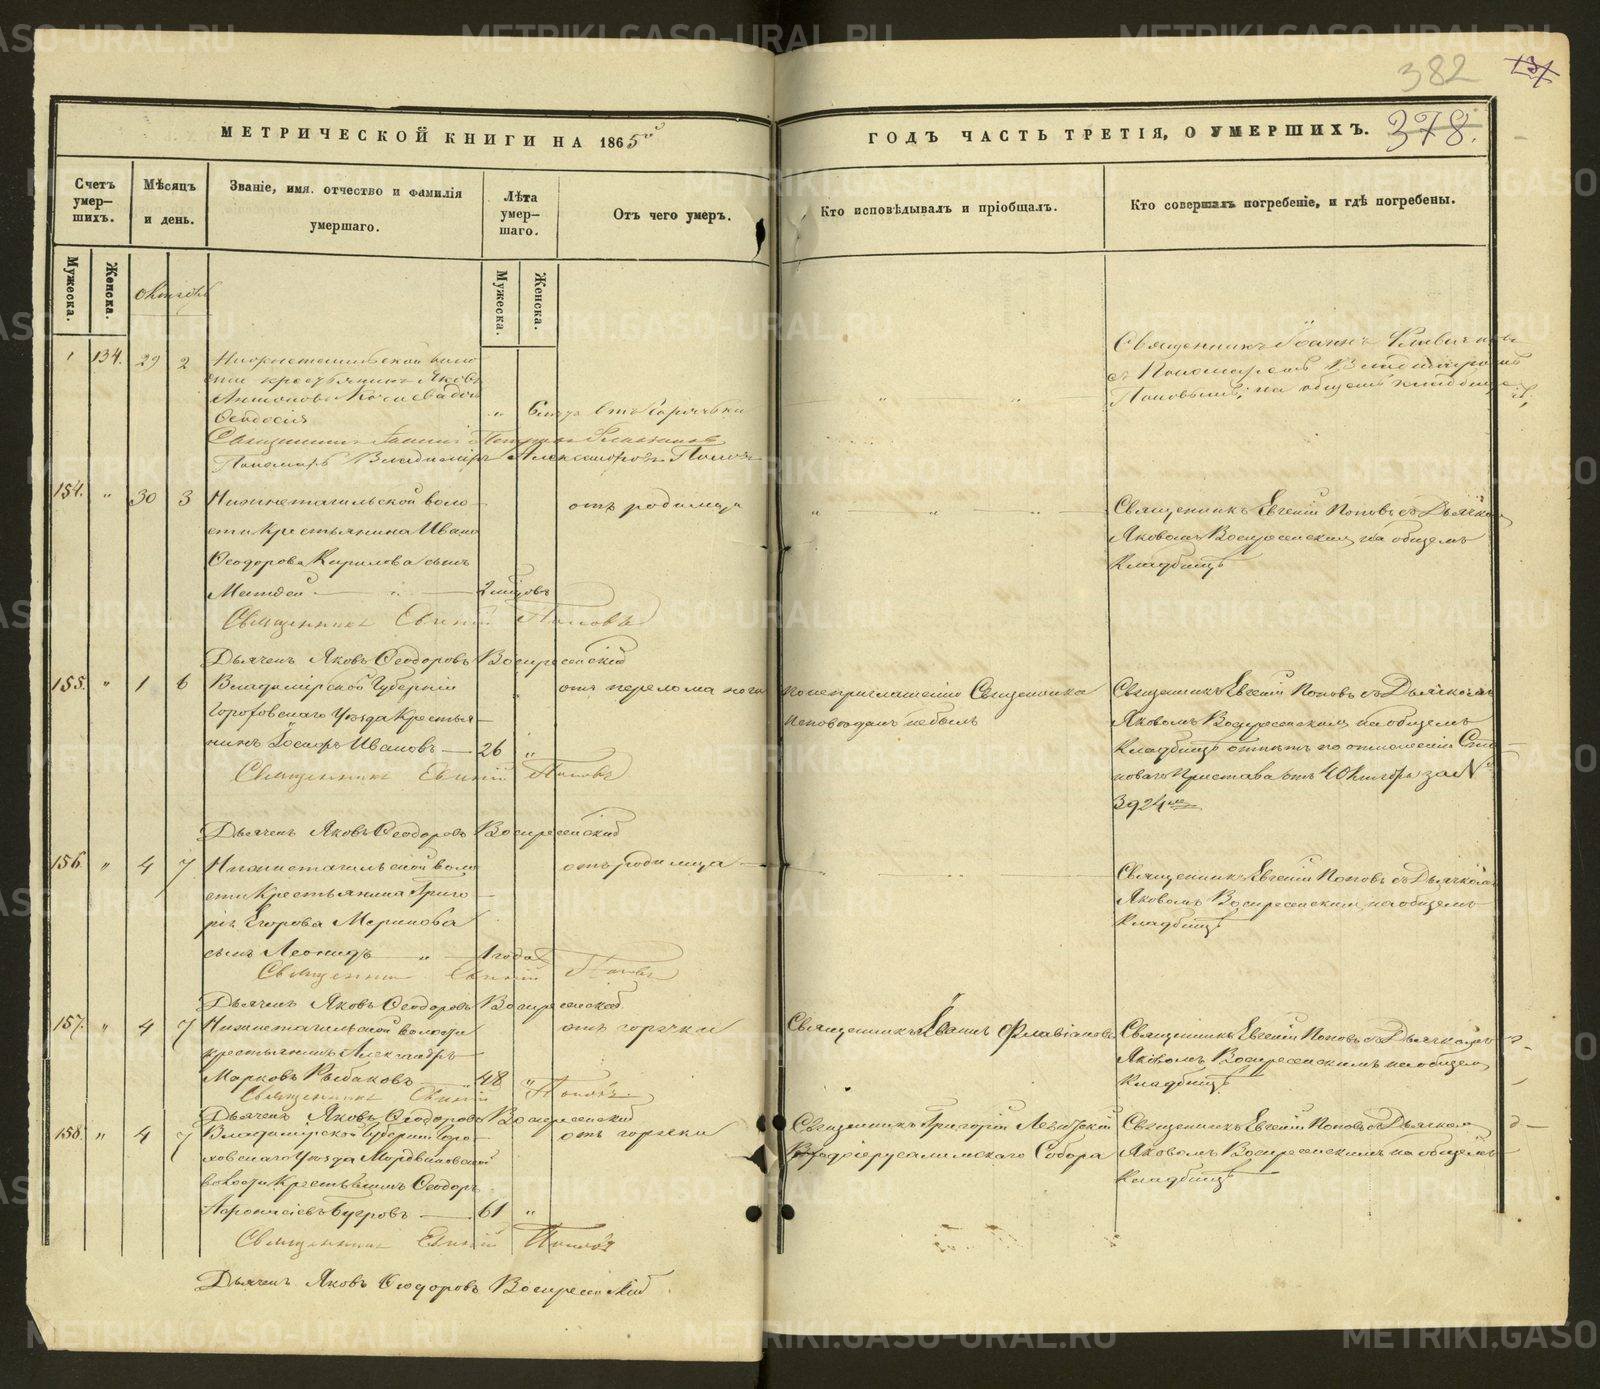 382
378.
МЕТРИЧЕСКОЙ КНИГИ НА 1865й
ГОДЪ ЧАСТЬ ТРЕТІЯ, О УМЕРШИХЪ.
Счетъ умер—шихъ.
Мѣсяцъ и день.
Званіе, имя. отчество и фамилія умершаго.
Лѣта умер—шаго.
Отъ чего умеръ.
Кто исповѣдывалъ и пріобщалъ.
Кто совершалъ погребеніе, и гдѣ погребены.
Мужеска.
Женска.
Мужеска.
Женска.
134. 29 2
крестьянина Яковъ
Ѳеодосія
отъ горячки
Священникъ Іоаннъ
съ Пономаремъ Владиміромъ
Поповымъ, на общемъ кладбищѣ
Священникъ Іоаннъ
Пономарь Владиміръ Александровъ Поповъ
154. " 30 3 Нижнетагильской воло
сти Крестьянина Ивана
Ѳеодорова Кирилова сынъ
Матѳей
отъ родимца
Священникъ Евгеній Поповъ съ Дьячкомъ
Яковомъ Воскресенскимъ, на общемъ
Кладбищѣ
Священникъ Евгеній Поповъ
Дьячекъ Яковъ Ѳеодоровъ Воскресенскій
155. " 1 6 Владимірской Губерніи
Гороховскаго Уѣзда Крестья
нинъ Іосифъ Ивановъ — 26 "
отъ перелома ноги
по неприглашенію Священника
исповѣданъ не былъ
Священникъ Евгеній Поповъ съ Дьячкомъ
Яковомъ Воскресенскимъ, на общемъ
Кладбищѣ отпѣтъ по отношенію Ста
новаго Пристава отъ 4 Октября за №
3924мъ
Священникъ Евгеній Поповъ
Дьячекъ Яковъ Ѳеодоровъ Воскресенскій
156 " 4 7 Нижнетагильской воло
сти Крестьянина Григо
рія Егорова Меринова
сынъ Леонидъ — " — 1 года
отъ родимца
Священникъ Евгеній Поповъ съ Дьячкомъ
Яковомъ Воскресенскимъ, на общемъ
Кладбищѣ
Священникъ Евгеній Поповъ
Дьячекъ Яковъ Ѳеодоровъ Воскресенскій
157. " 4 7 Нижнетагильской волости
крестьянинъ Александръ
Марковъ Рыбаковъ 48 "
отъ горячки
Священникъ Іоаннъ Флавіановъ
Священникъ Евгеній Поповъ съ Дьячкомъ
Яковомъ Воскресенскимъ на общемъ
Кладбищѣ
Священникъ Евгеній Поповъ
Дьячекъ Яковъ Ѳеодоровъ Воскресенскій
158. " 4 7 Владимірской Губерніи Горо
ховскаго Уѣзда Мордвиновской
волости Крестьянинъ Ѳеодоръ
Бугровъ — 61 "
отъ горячки
Священникъ Григорій Левитскій
Входоіерусалимскаго Собора
Священникъ Евгеній Поповъ съ Дьячкомъ
Яковомъ Воскресенскимъ на общемъ
Кладбищѣ
Священникъ Евгеній Поповъ
Дьячекъ Яковъ Ѳеодоровъ Воскресенскій
METRIKI.GASO-URAL.RU